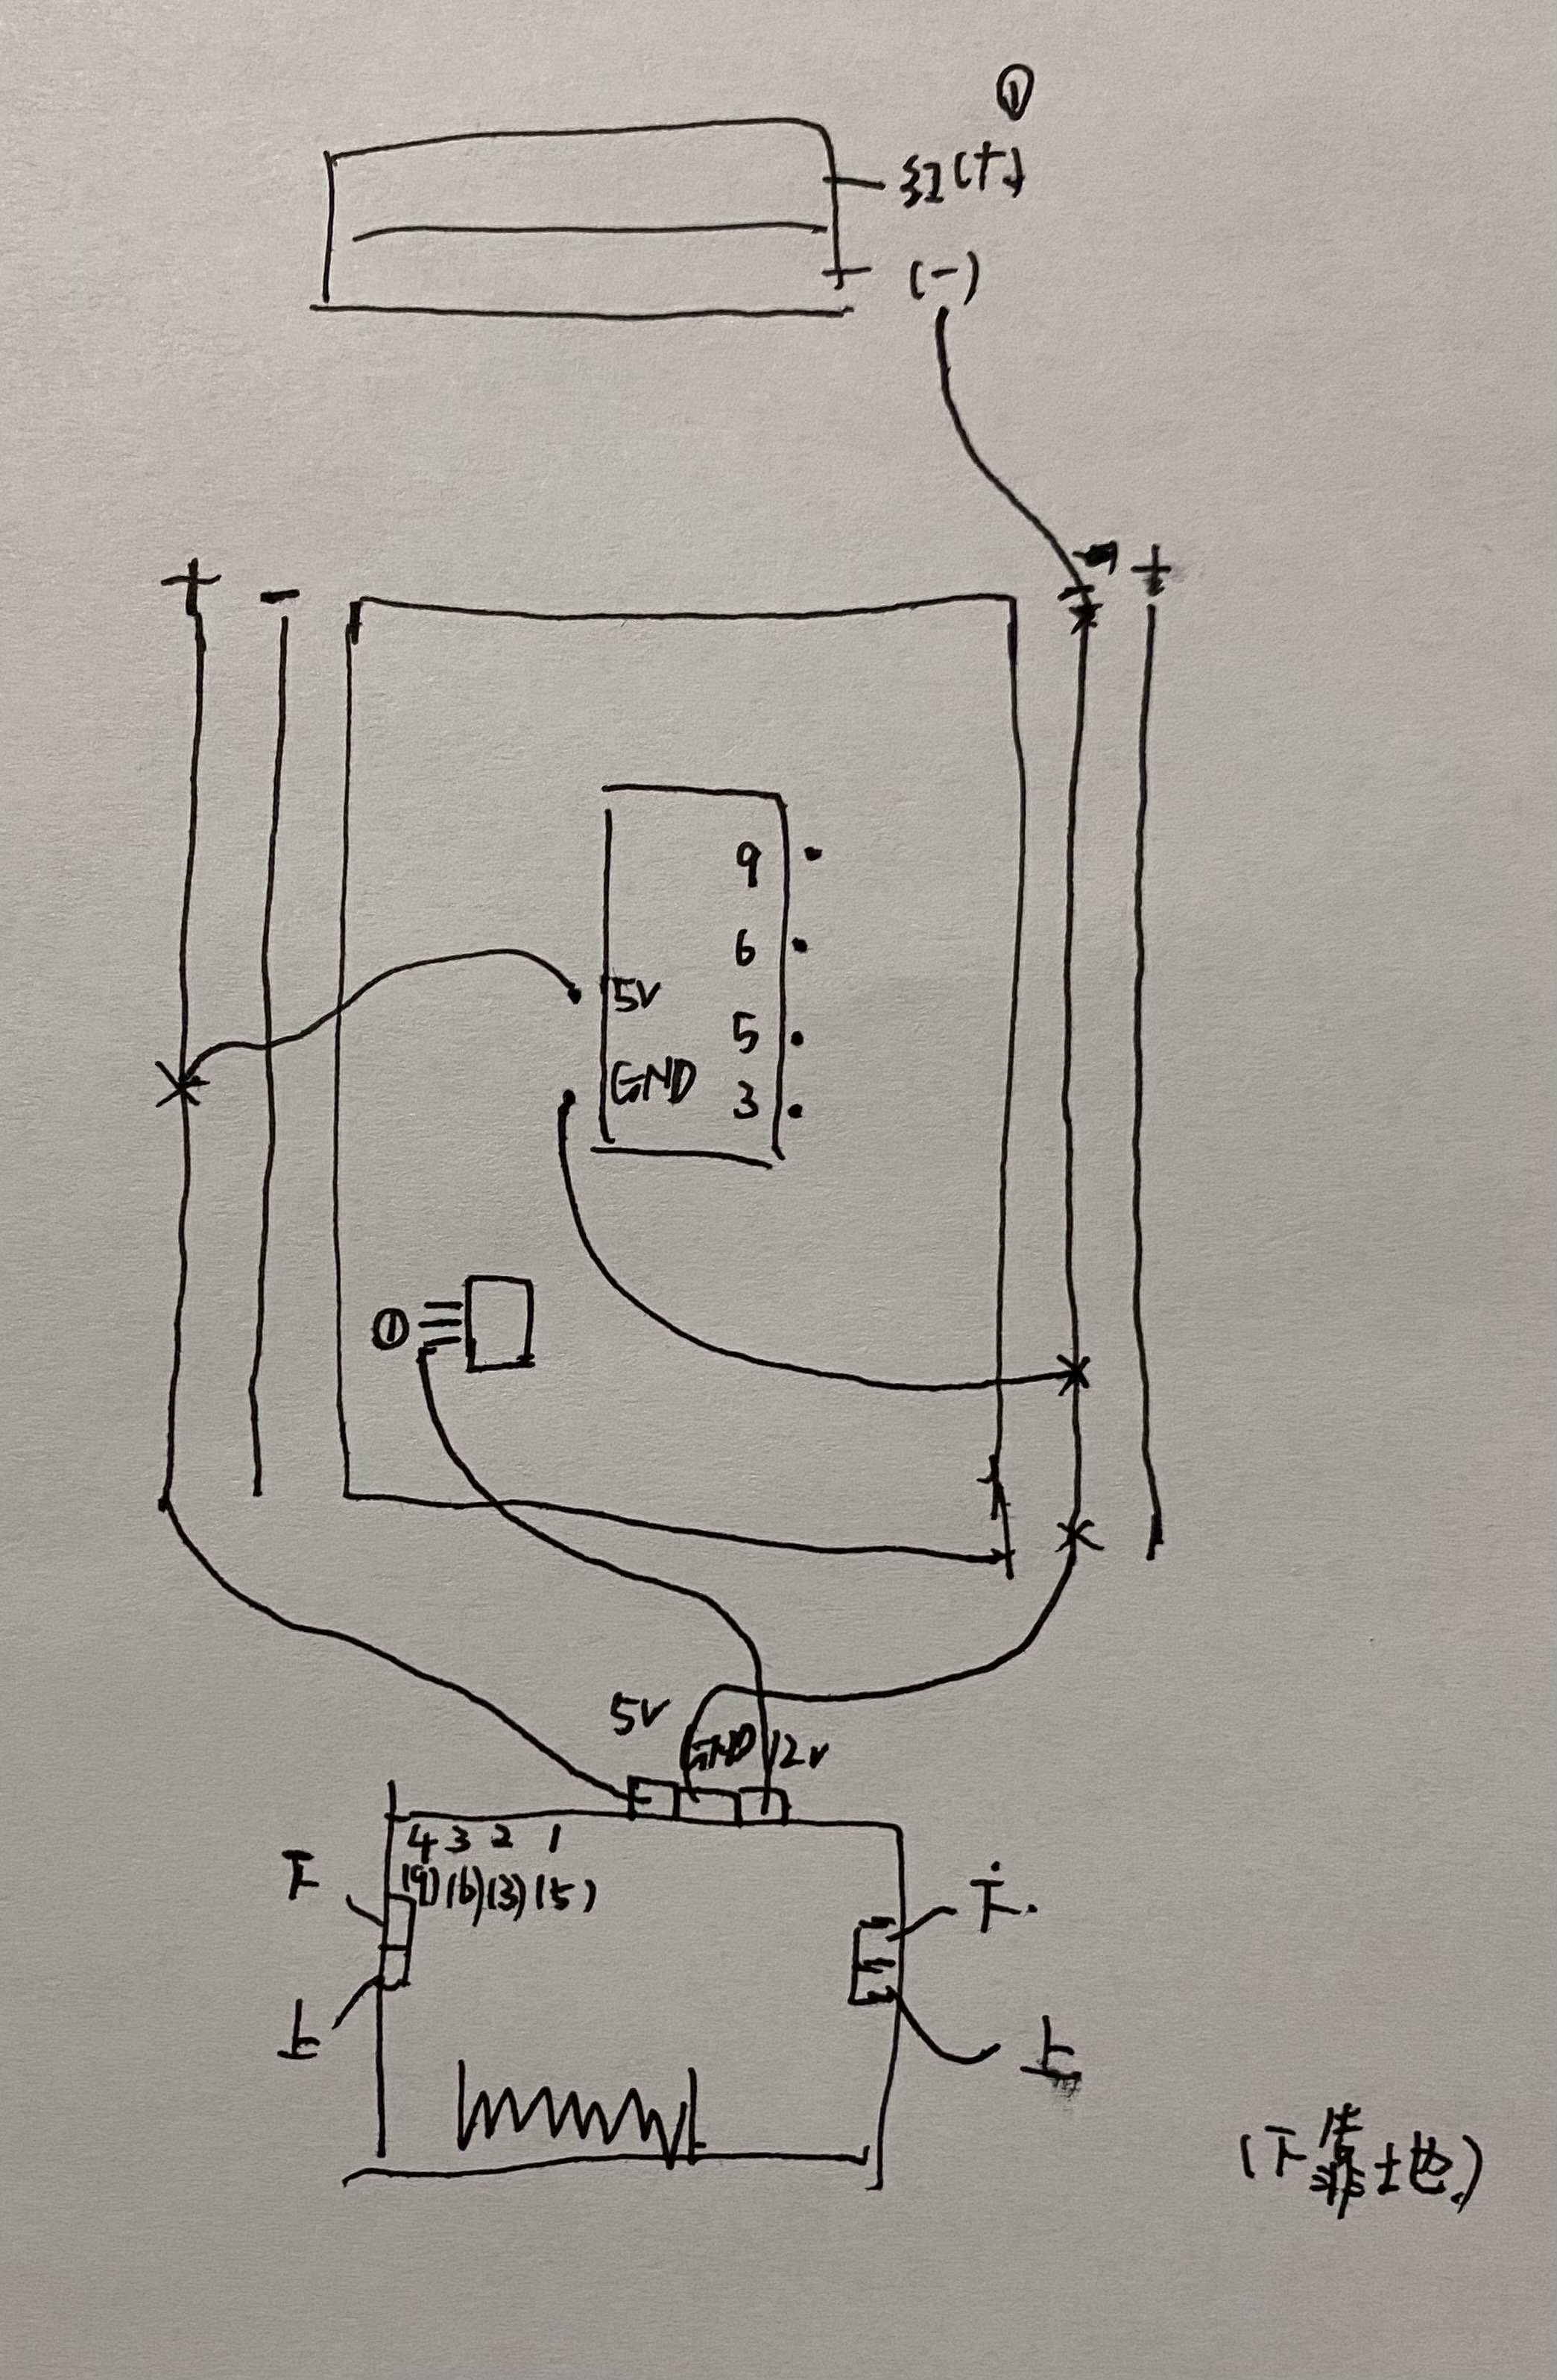 ①
红(+)
(-)
+ - - +
9
6
5V
5
GND
3
①
5V GND 12V
4 3 2 1
(9)(6)(3)(5)
下 下
上 上
(下靠地)